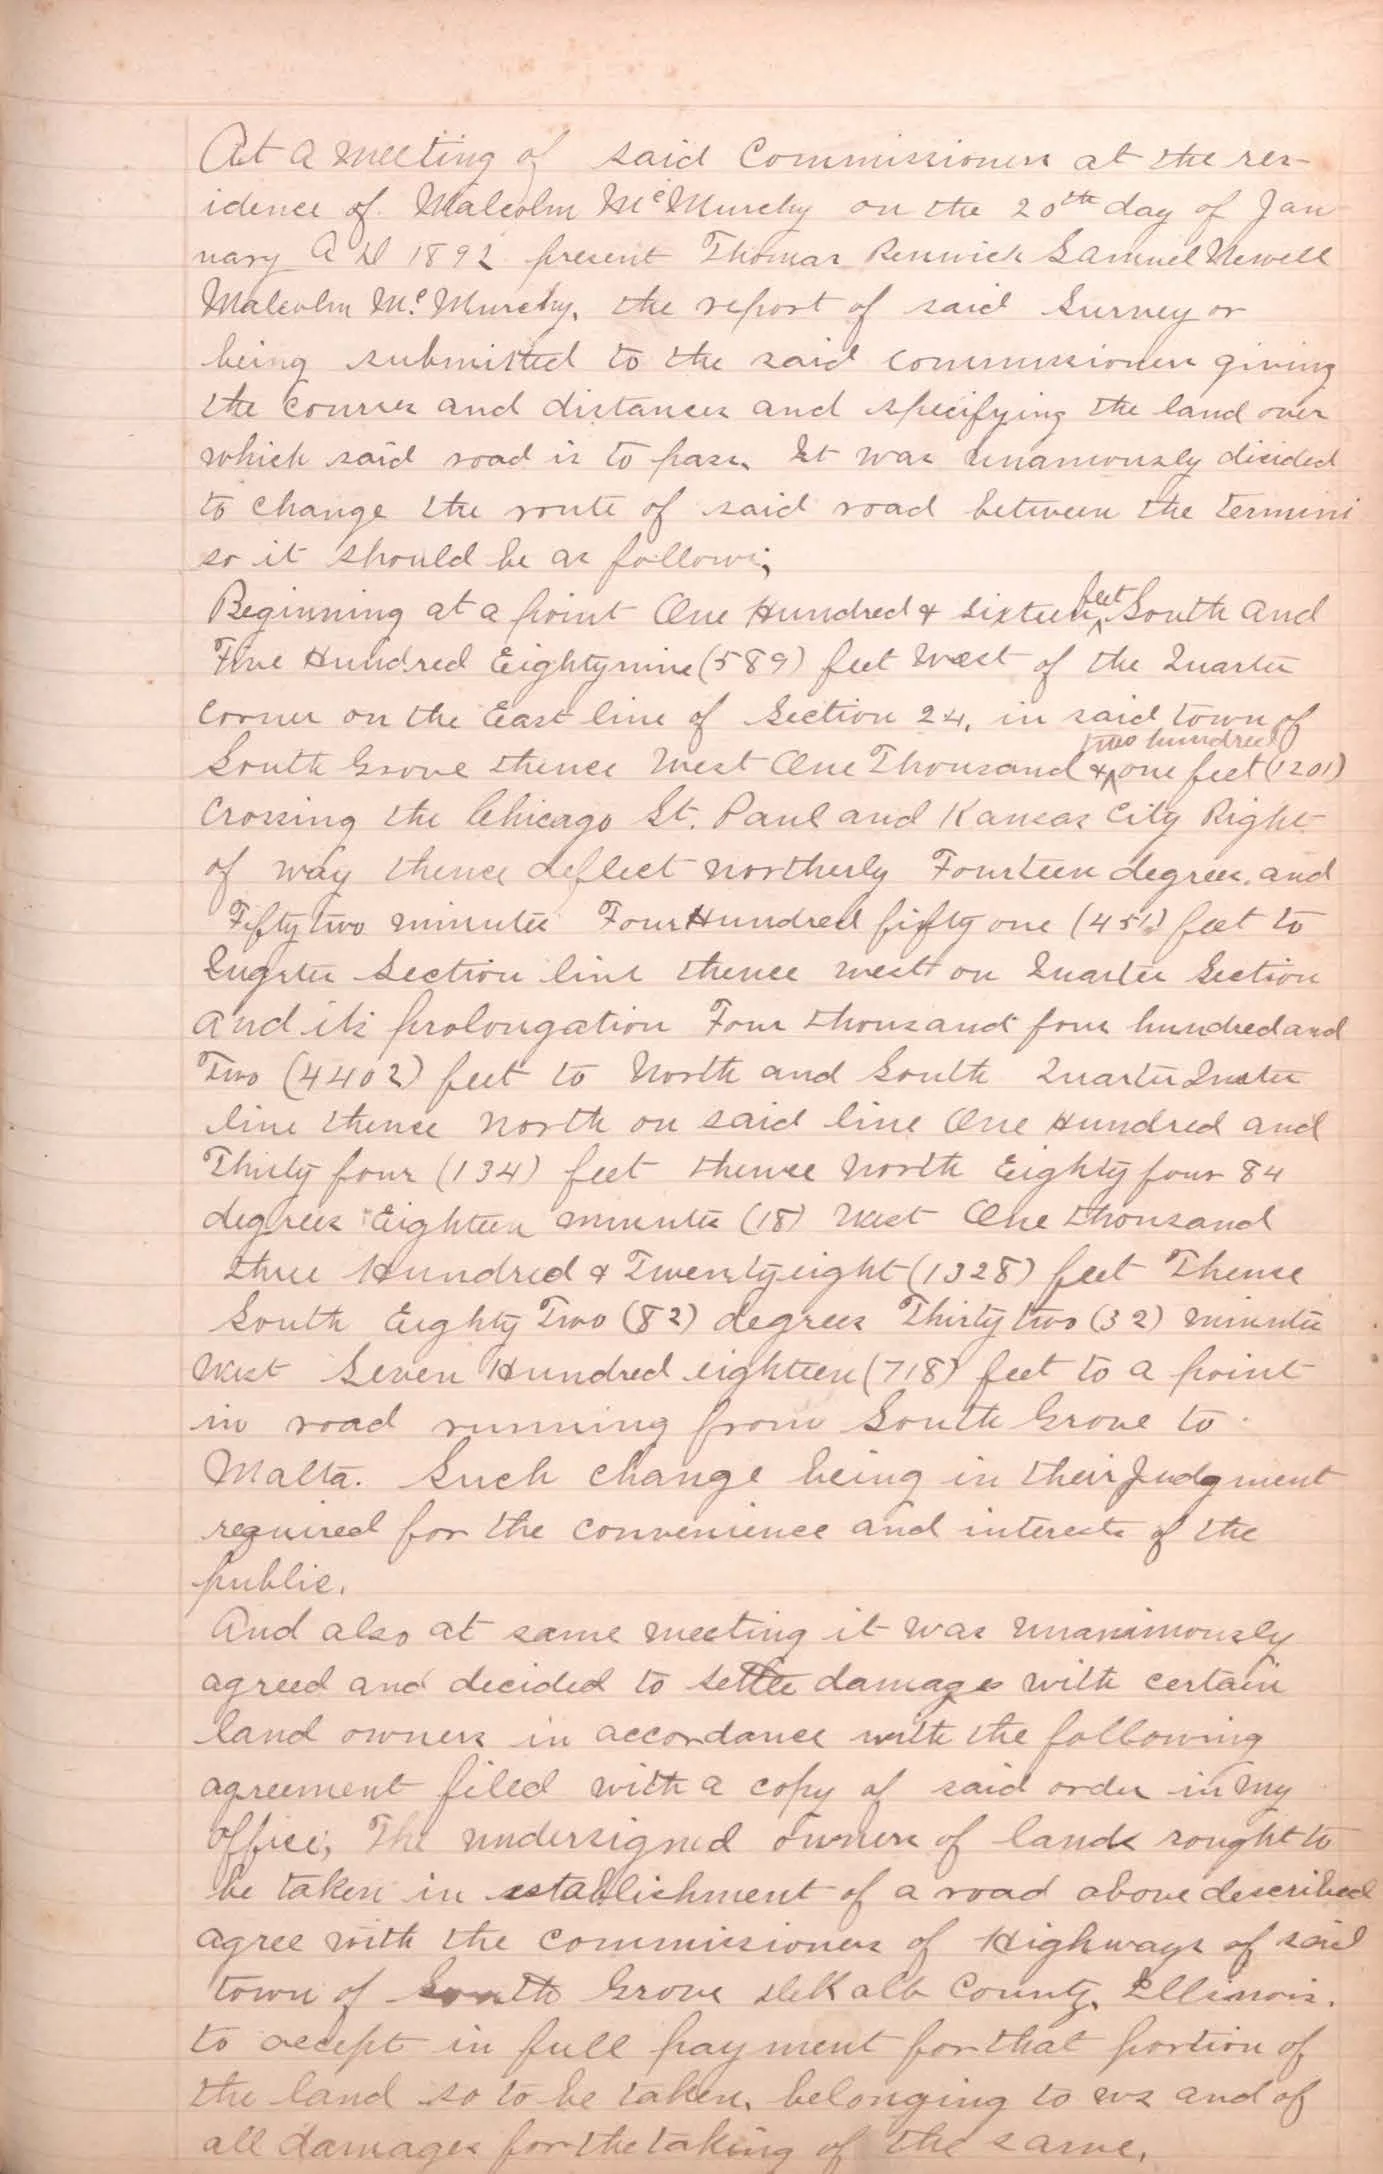 At a meeting of said Commissioners at the res-
idence of Malcolm McMurchy on the 20th day of Jan
nary A D 1892 present Thomas Renwick Samuel Newell
Malcolm Mc. Murchy. the report of said Surveyor
being submitted to the said commissioners giving
the courses and distances and specifying the land over
which said road is to pass. It was unamously dicided
to change the route of said road between the termini
so it should be as follows;
Beginning at a point One Hundred & sixteen feet South and
Five Hundred Eightynine (589) feet West of the Quarter
corner on the East line of Section 24, in said town of
South Grove thence West One Thousand & two hundred one feet (1201)
Crossing the Chicago St. Paul and Kansas City Right
of way thence deflect northerly Fourteen degrees and
Fifty two minutes Four Hundred fifty one (451) feet to
Quarter Section line thence west on Quarter Section
and its prolongation Four thousand four hundred and
Two (4402) feet to North and South Quarter Quarter
line thence North on said line One Hundred and
Thirty four (134) feet thence North Eighty four 84
degrees Eighteen minutes (18) West One thousand
three Hundred & Twenty eight (1328) feet Thence
South Eighty Two (82) degrees Thirty two (32) minutes
West Seven Hundred eighteen (718) feet to a point
in road running from South Grove to
Malta. Such change being in their judgment
required for the convenience and interests of the
public.
And also at same meeting it was unanimously
agreed and decided to settle damages with certain
land owners in accordance with the following
agreement filed with a copy of said order in my
office; The undersigned owners of lands sought to
be taken in establishment of a road above described
agree with the commissioners of Highways of said
town of South Grove DeKalb County, Illinois.
to accept in full payment for that portion of
the land so to be taken, belonging to us and of
all damages for the taking of the same.